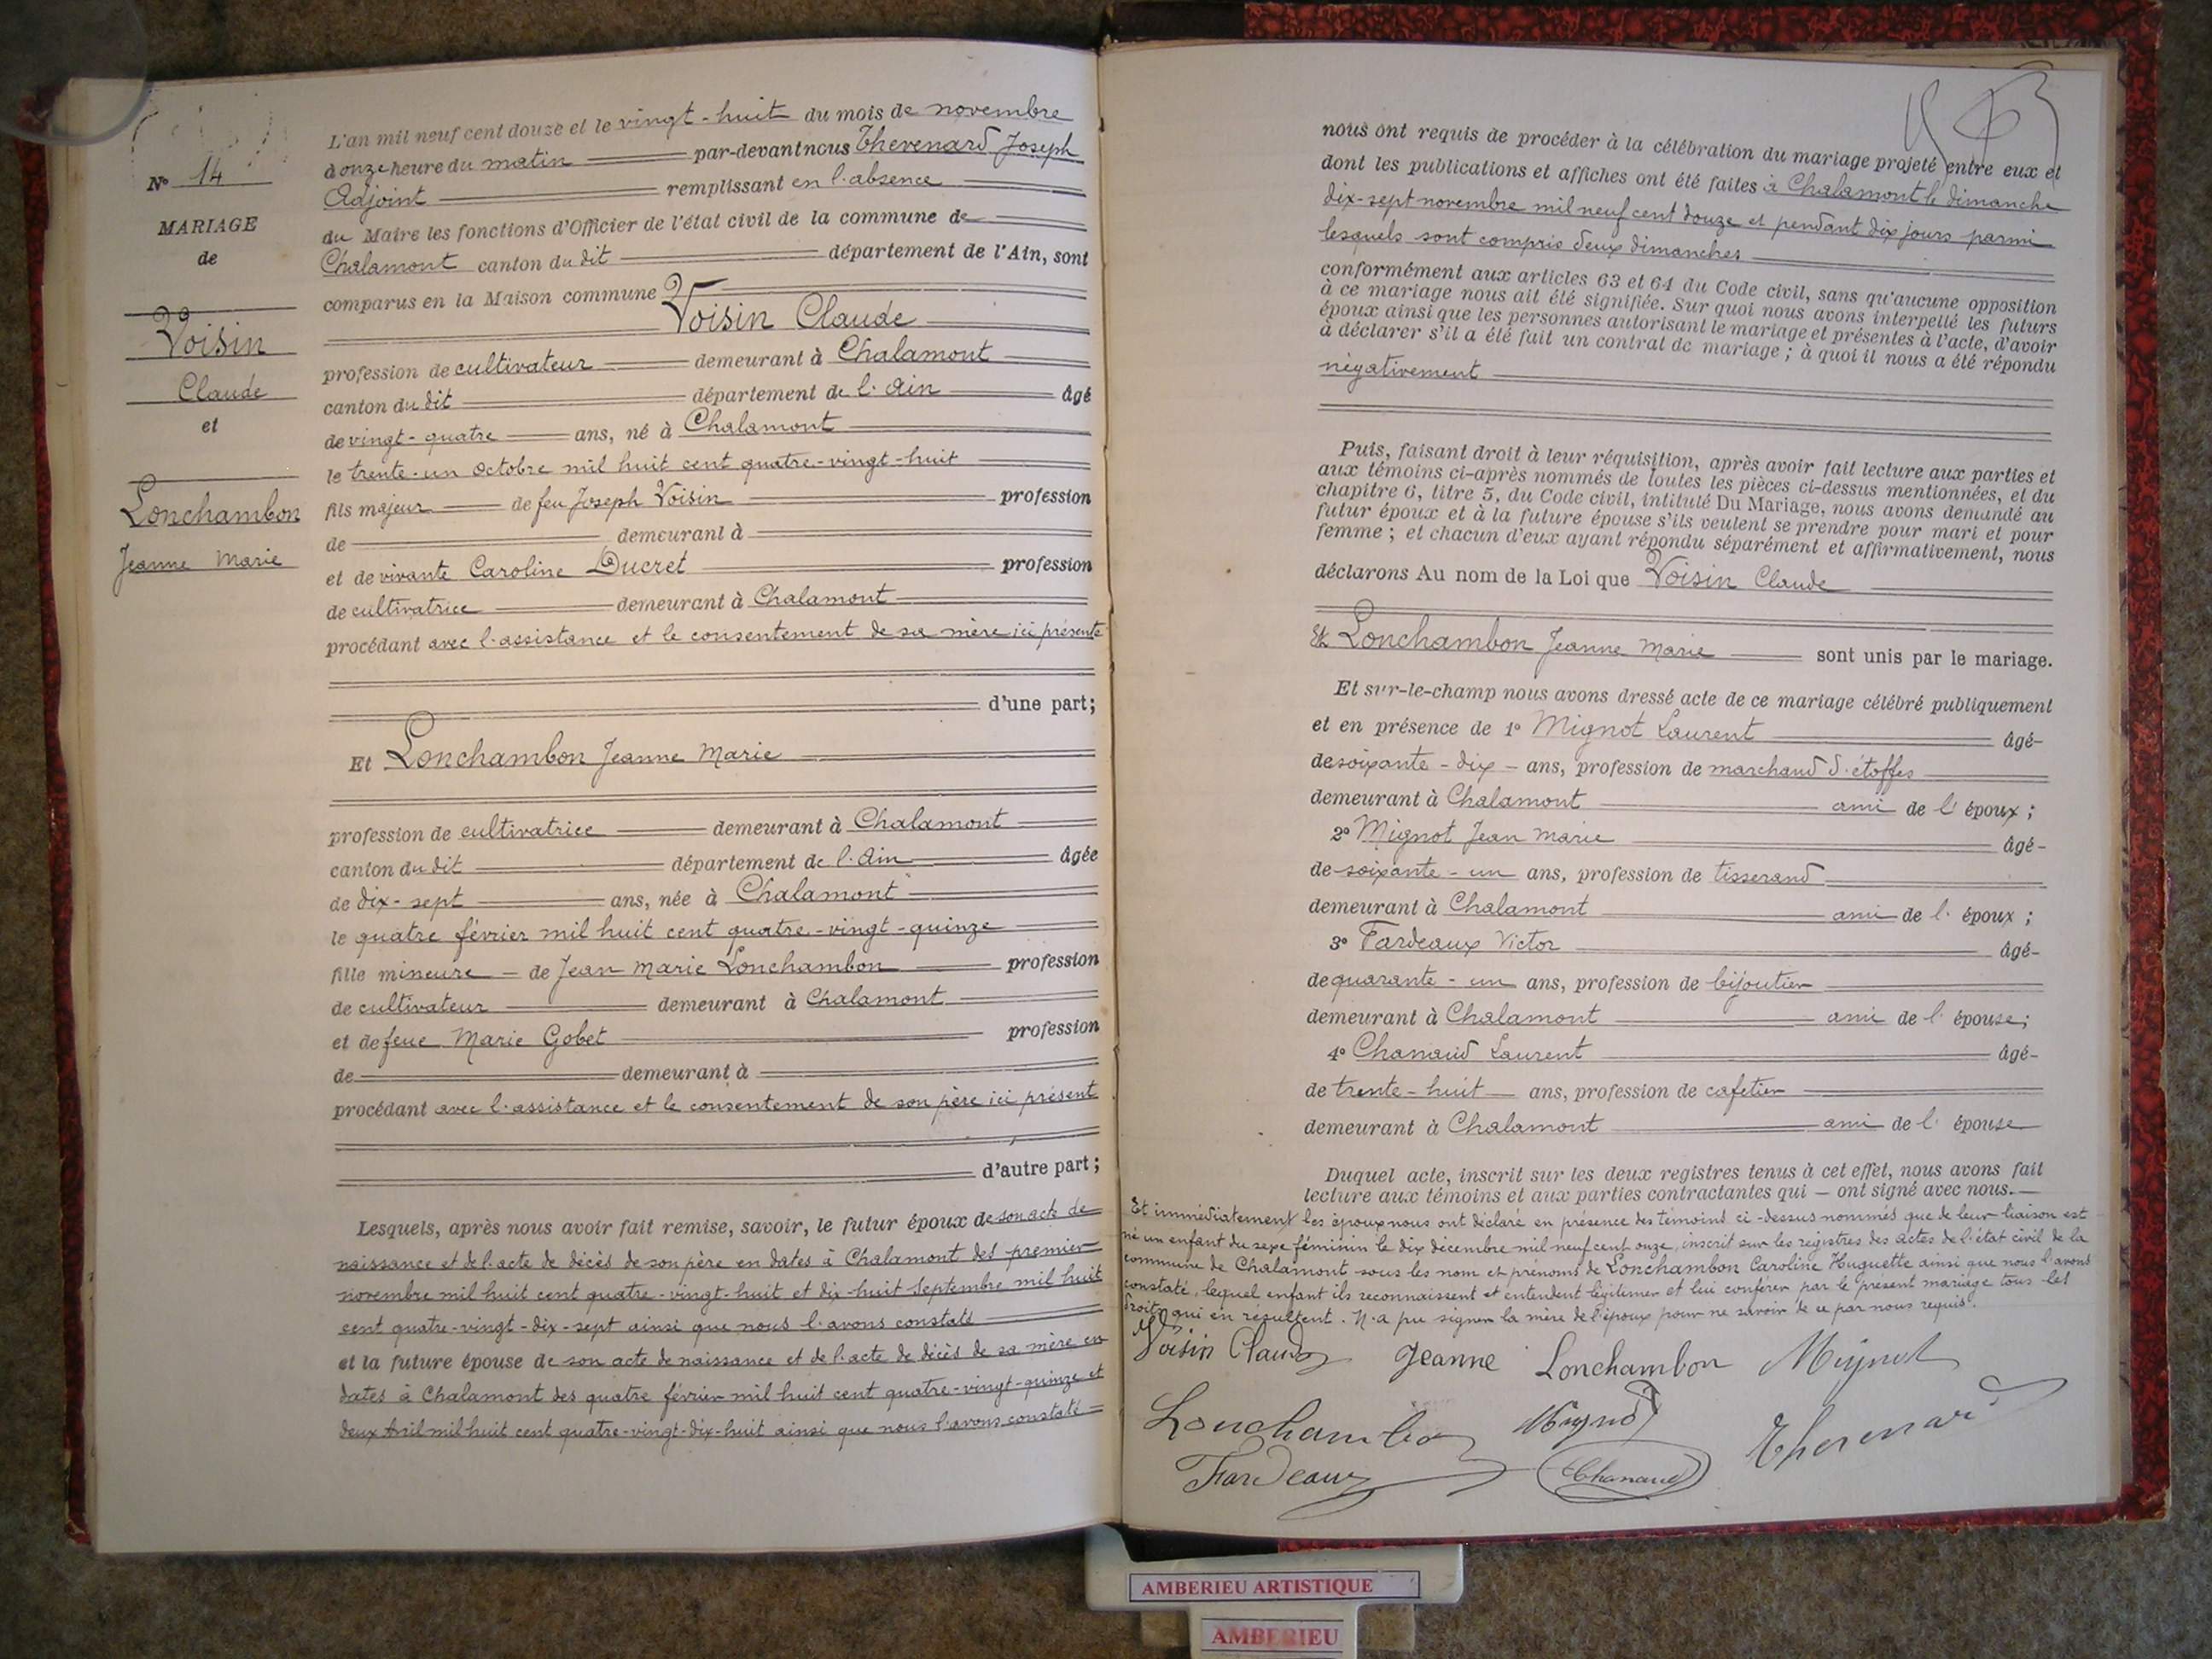 N° 14
MARIAGE
de
Voisin
Claude
et
Lonchambon
Jeanne Marie
L'an mil neuf cent douze et le vingt-huit du mois de novembre
à onze heure du matin par-devant nous Thevenard Joseph
Adjoint remplissant en l'absence
du Maire les fonctions d'Officier de l'état civil de la commune de
Chalamont canton du dit département de l'Ain, sont
comparus en la Maison commune
Voisin Claude
profession de cultivateur demeurant à Chalamont
canton du dit département de l'Ain âgé
de vingt-quatre ans, né à Chalamont
le trente-un Octobre mil huit cent quatre-vingt-huit
fils majeur de feu Joseph Voisin profession
de demeurant à
et de vivante Caroline Ducret profession
de cultivatrice demeurant à Chalamont
procédant avec l'assistance et le consentement de sa mère ici présente
d'une part;
Et Lonchambon Jeanne Marie
profession de cultivatrice demeurant à Chalamont
canton du dit département de l'Ain âgée
de dix-sept ans, née à Chalamont
le quatre février mil huit cent quatre-vingt-quinze
fille mineure de Jean Marie Lonchambon profession
de cultivateur demeurant à Chalamont
et de feue Marie Gobet profession
de demeurant à
procédant avec l'assistance et le consentement de son père ici présent
d'autre part;
Lesquels, après nous avoir fait remise, savoir, le futur époux de son acte de
naissance et de l'acte de décès de son père en dates à Chalamont des premier
novembre mil huit cent quatre-vingt-huit et dix-huit Septembre mil huit
cent quatre-vingt-dix-sept ainsi que nous l'avons constaté
et la future épouse de son acte de naissance et de l'acte de décès de sa mère en
dates à Chalamont des quatre février mil huit cent quatre-vingt-quinze et
deux Avril mil huit cent quatre-vingt-dix-huit ainsi que nous l'avons constaté
nous ont requis de procéder à la célébration du mariage projeté entre eux et
dont les publications et affiches ont été faites à Chalamont le dimanche
dix-sept novembre mil neuf cent douze et pendant dix jours parmi
lesquels sont compris deux dimanches
conformément aux articles 63 et 64 du Code civil, sans qu'aucune opposition
à ce mariage nous ait été signifiée. Sur quoi nous avons interpellé les futurs
époux ainsi que les personnes autorisant le mariage et présentes à l'acte, d'avoir
à déclarer s'il a été fait un contrat de mariage; à quoi il nous a été répondu
négativement
Puis, faisant droit à leur réquisition, après avoir fait lecture aux parties et
aux témoins ci-après nommés de toutes les pièces ci-dessus mentionnées, et du
chapitre 6, titre 5, du Code civil, intitulé Du Mariage, nous avons demandé au
futur époux et à la future épouse s'ils veulent se prendre pour mari et pour
femme; et chacun d'eux ayant répondu séparément et affirmativement, nous
déclarons Au nom de la Loi que Voisin Claude
Et Lonchambon Jeanne Marie sont unis par le mariage.
Et sur-le-champ nous avons dressé acte de ce mariage célébré publiquement
et en présence de 1° Mignot Laurent âgé
de soixante-dix ans, profession de marchand d'étoffes
demeurant à Chalamont ami de l'époux;
2° Mignot Jean Marie âgé
de soixante-un ans, profession de tisserand
demeurant à Chalamont ami de l'époux;
3° Fardeaux Victor âgé
de quarante-un ans, profession de bijoutier
demeurant à Chalamont ami de l'épouse;
4° Chanaud Laurent âgé
de trente-huit ans, profession de cafetier
demeurant à Chalamont ami de l'épouse
Duquel acte, inscrit sur les deux registres tenus à cet effet, nous avons fait
lecture aux témoins et aux parties contractantes qui — ont signé avec nous.—
Et immédiatement les époux nous ont déclaré en présence des témoins ci-dessus nommés que de leur liaison est
né un enfant du sexe féminin le dix décembre mil neuf cent onze, inscrit sur les registres des actes de l'état civil de la
commune de Chalamont sous les nom et prénoms de Lonchambon Caroline Huguette ainsi que nous l'avons
constaté, lequel enfant ils reconnaissent et entendent légitimer et lui conférer par le présent mariage tous les
droits qui en résultent. N'a pu signer la mère de l'époux pour ne savoir de ce par nous requis.
Voisin Claude Jeanne Lonchambon Mignot
Lonchambon Mignot Thevenard
Fardeaux Chanaud
AMBERIEU ARTISTIQUE
AMBERIEU